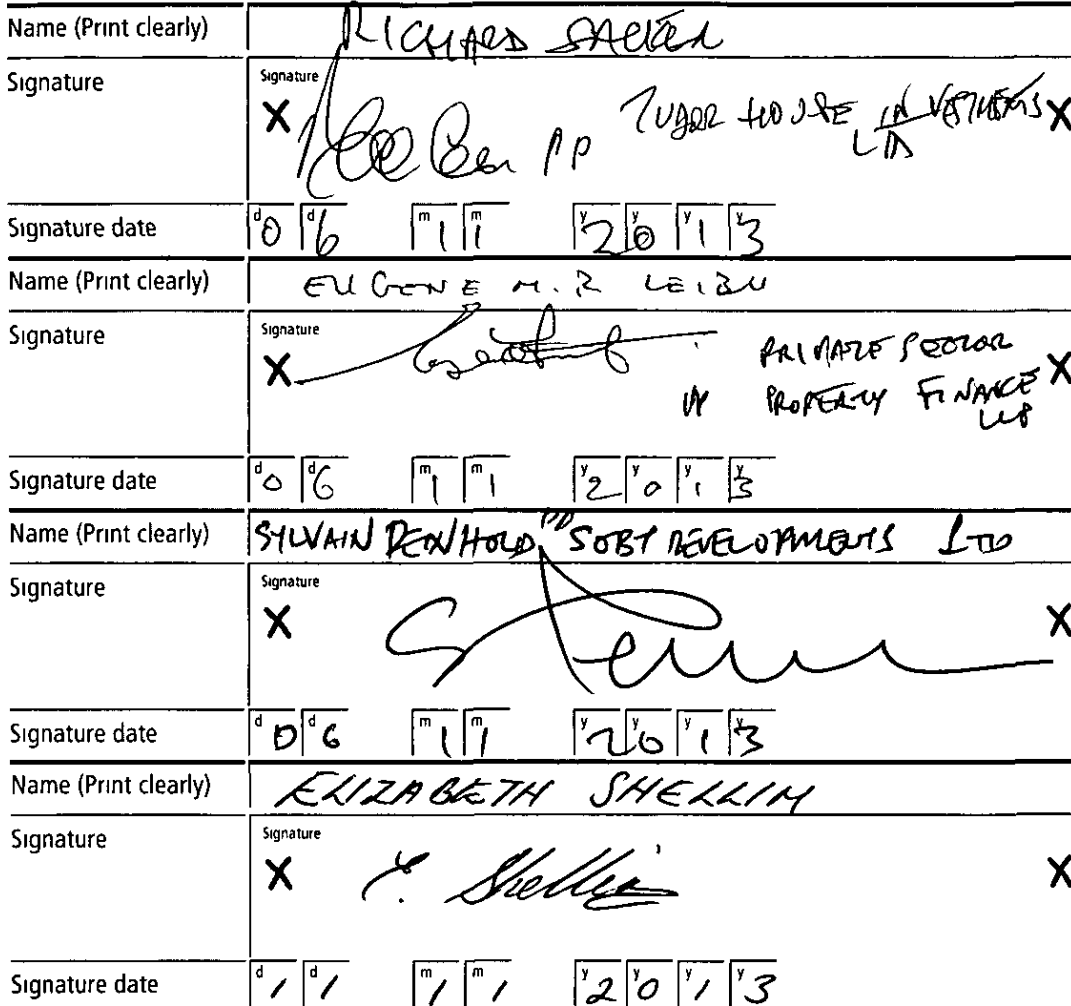 Name (Print clearly) RICHARD SACKER
Signature
Signature
X PP TUDOR HOUSE INVESTMENTS X
LTD
Signature date d0 d6 m1 m1 y2 y0 y1 y3
Name (Print clearly) EUGENE M. R LEIBU
Signature
Signature
X PRIVATE SECTOR X
PROPERTY FINANCE
LLP
Signature date d0 d6 m1 m1 y2 y0 y1 y3
Name (Print clearly) SYLVAIN DENHOLD PP SOBT DEVELOPMENTS LTD
Signature
Signature
X X
Signature date d0 d6 m1 m1 y2 y0 y1 y3
Name (Print clearly) ELIZABETH SHELLIM
Signature
Signature
X E. Shellim X
Signature date d1 d1 m1 m1 y2 y0 y1 y3